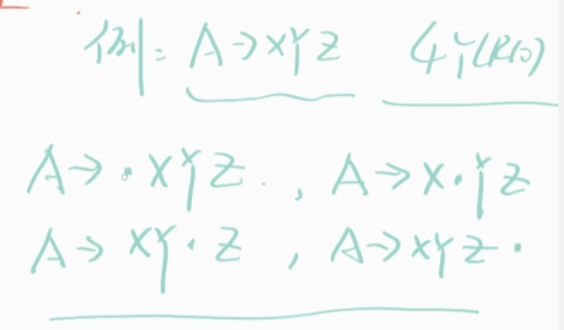 例: A→XYZ 4个LR(0)
A→·XYZ. , A→X·YZ
A→XY·Z , A→XYZ·